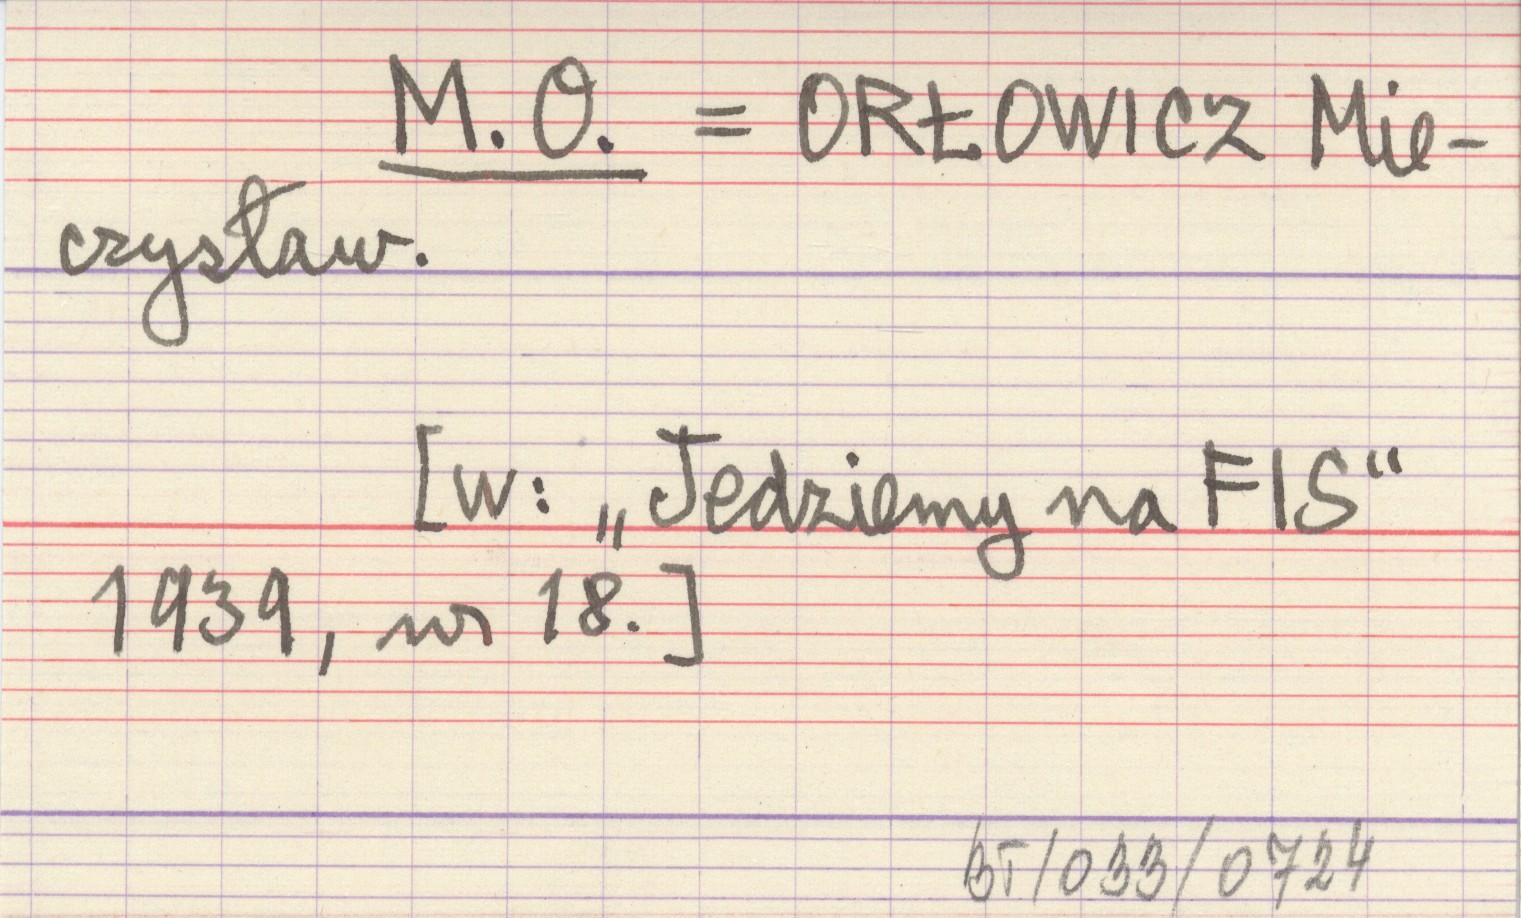 M.O. = ORŁOWICZ Mie-
czysław.
[w: „Jedziemy na FIS“
1939, nr 18.]
BT/033/0724